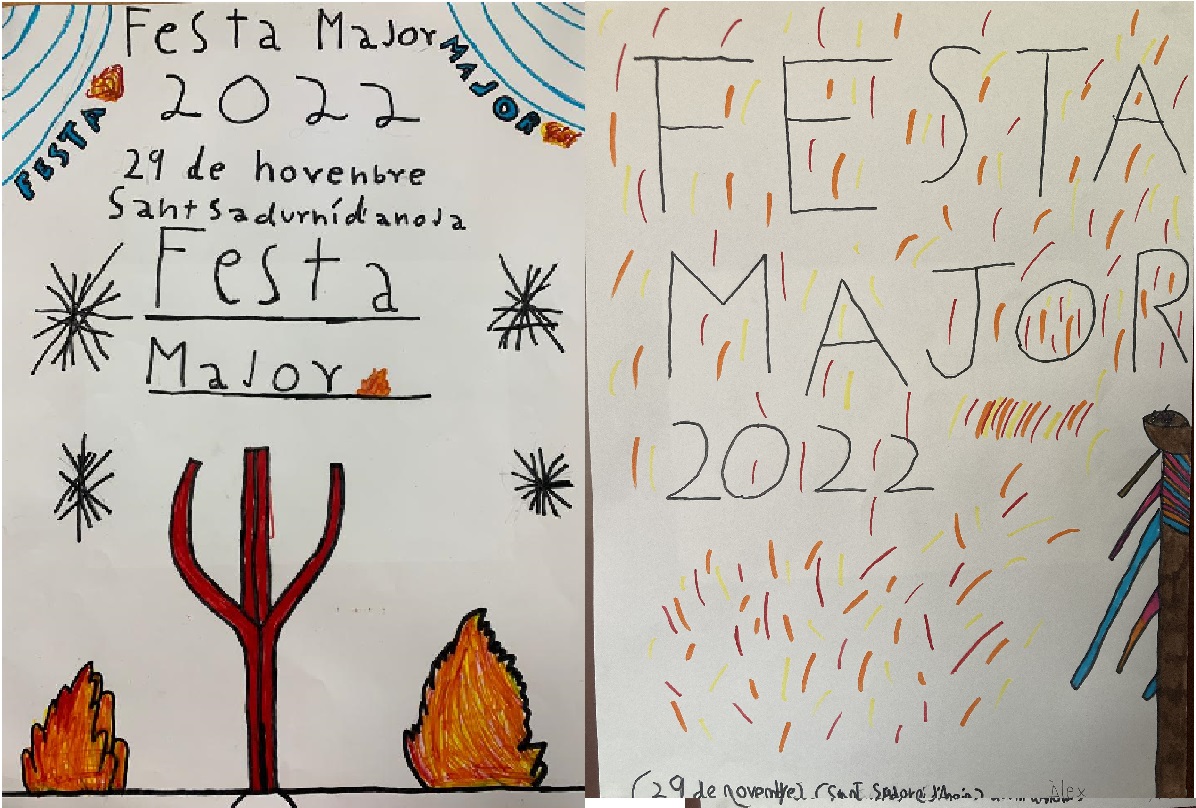 Festa Major
FESTA
MAJOR
2022
29 de hovenbre
Sant Sadurnídanoia
Festa
Major
FESTA
MAJOR
2022
(29 de novembre) (Sant Sadurní d'Anoia)
Alex